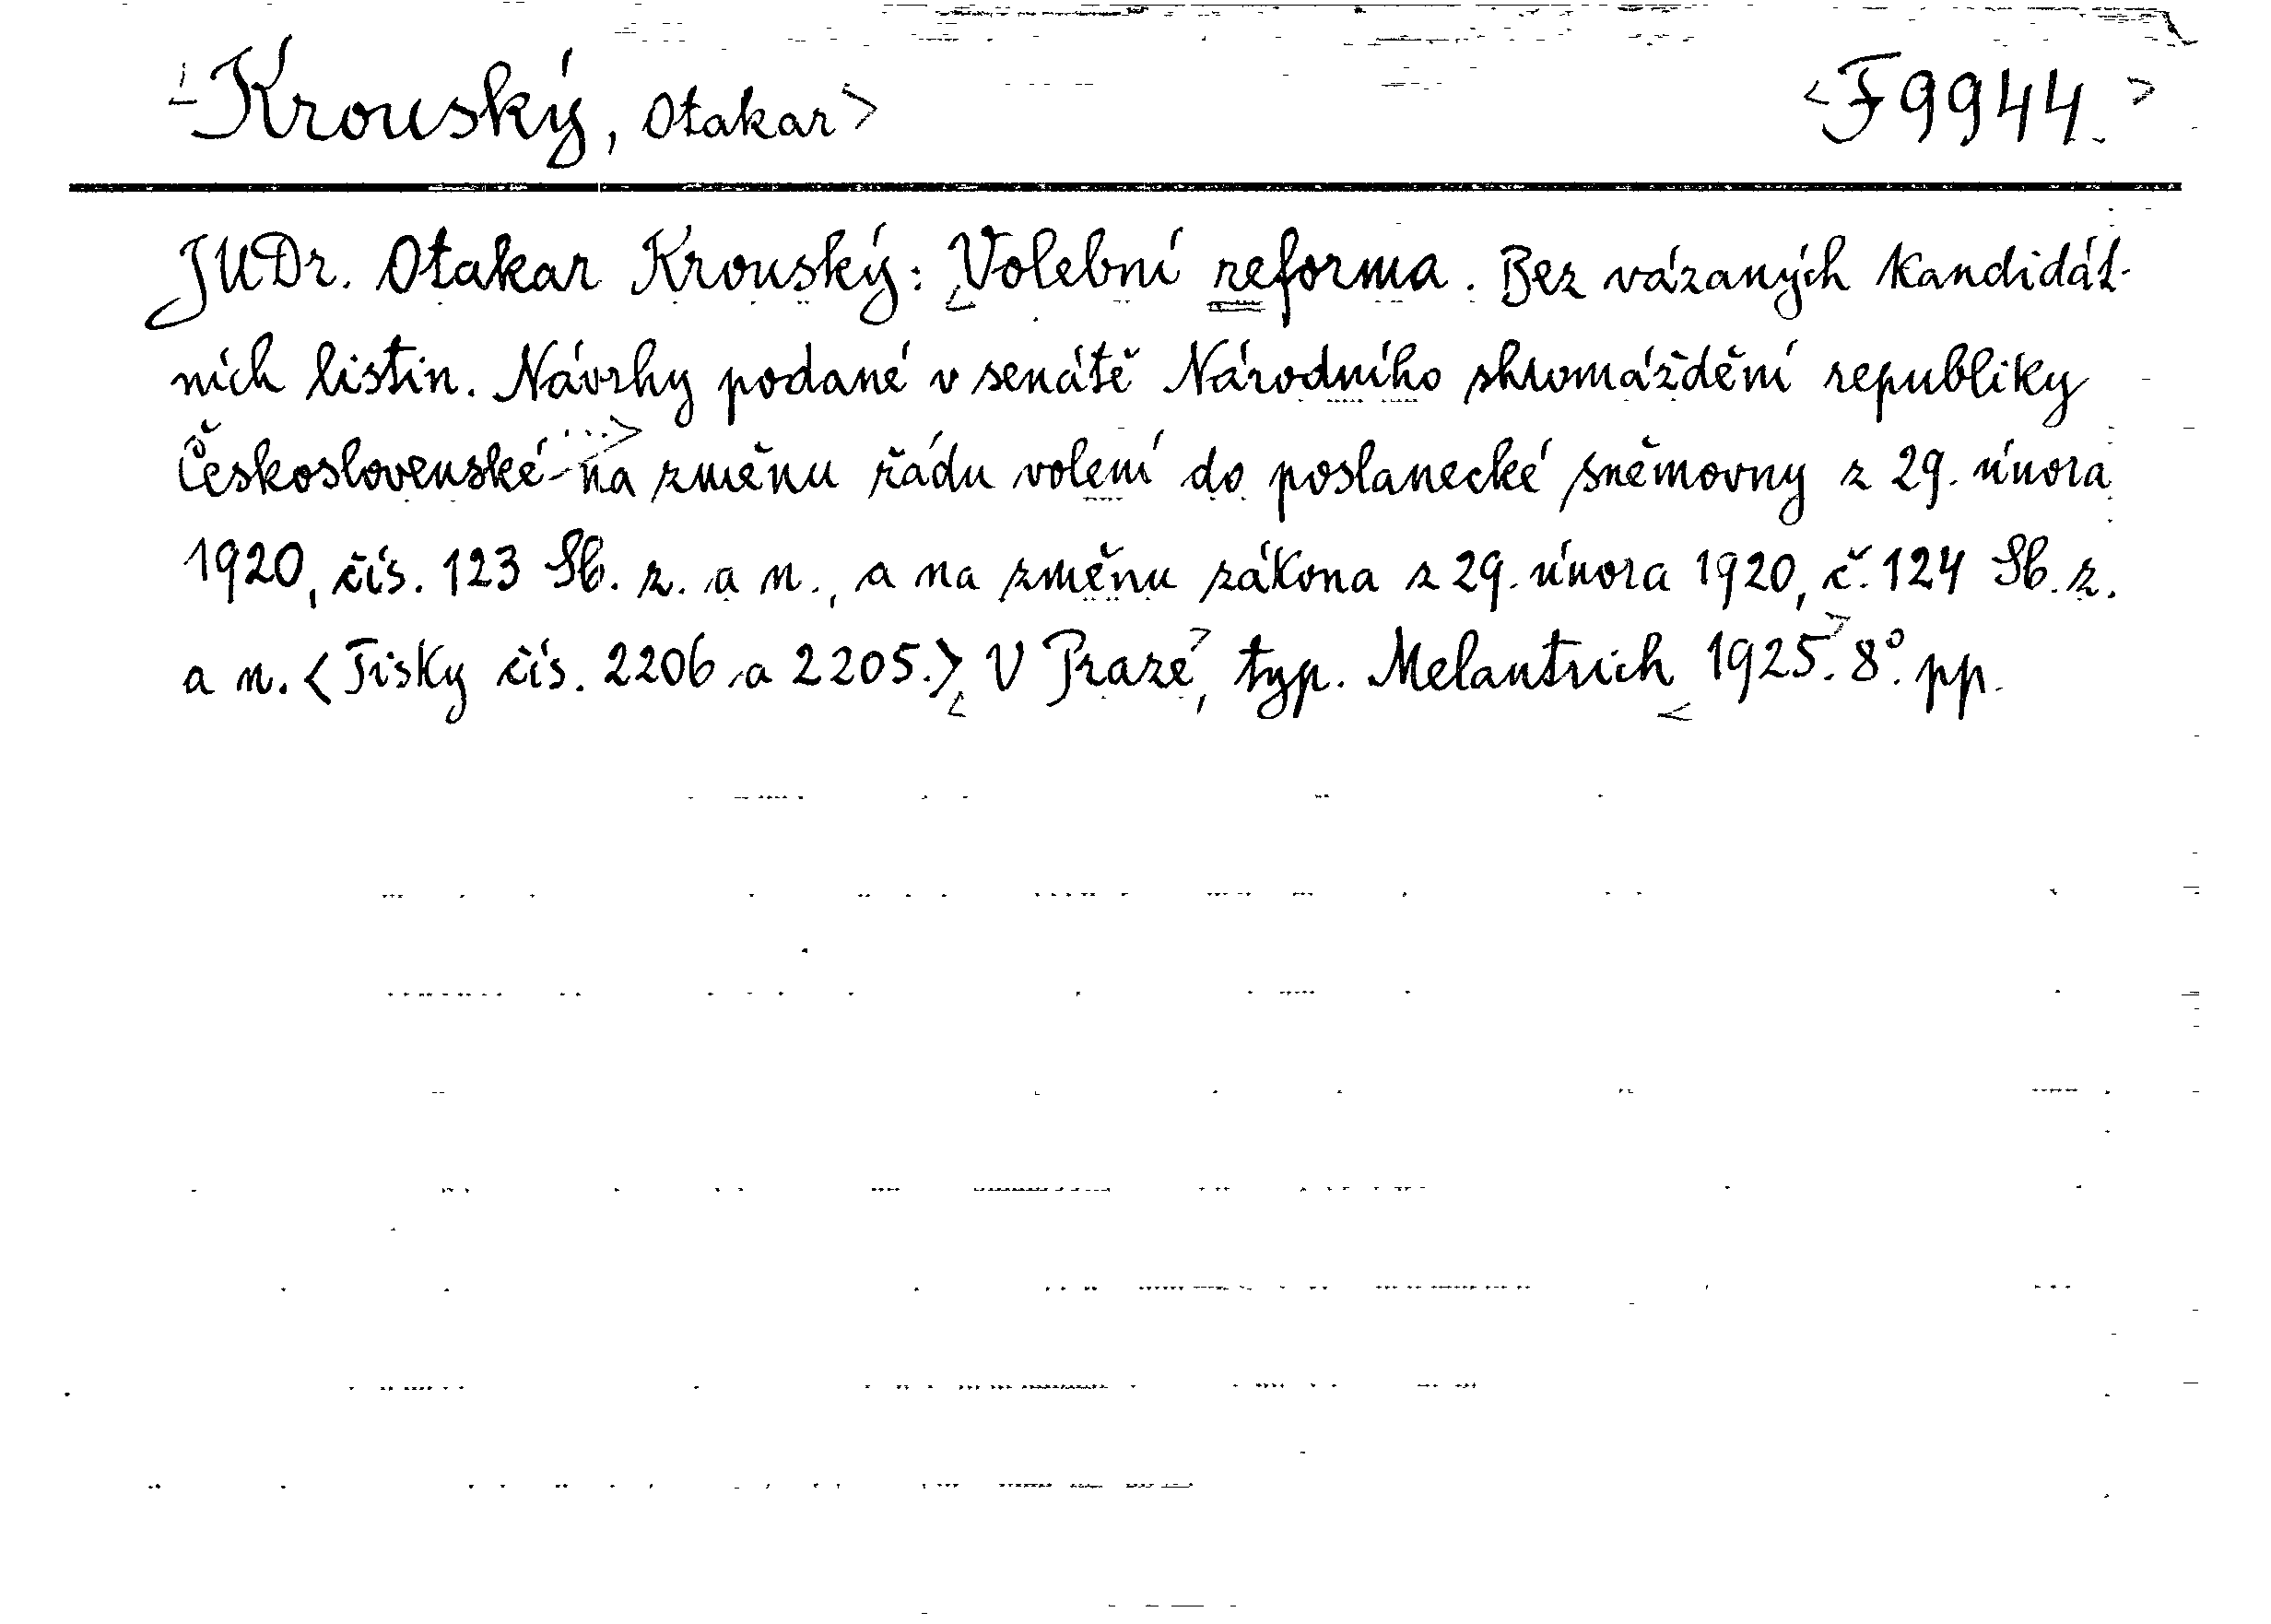 <Krouský, Otakar>
<F 9944.>
JUDr. Otakar Krouský: <Volební reforma. Bez vázaných kandidát-
ních listin. Návrhy podané v senátě Národního shromáždění republiky
Československé ...> na změnu řádu volení do poslanecké sněmovny z 29. února
1920, čís. 123 Sb. z. a n., a na změnu zákona z 29. února 1920, č. 124 Sb. z.
a n. <Tisky čís. 2206 a 2205.> <V Praze>, typ. Melantrich <1925.> 8°. pp.